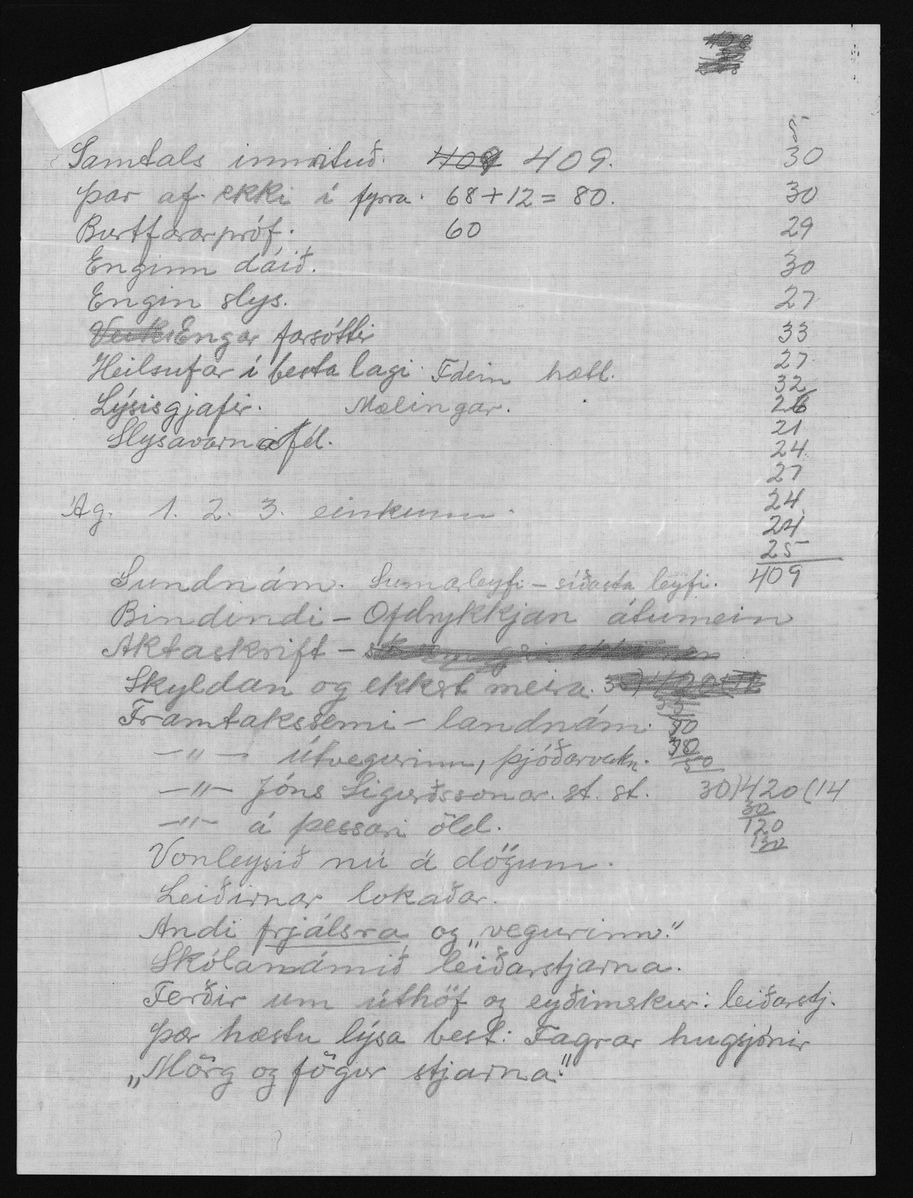 Samtals innrituð. 409.
30
þar af ekki í fyrra. 68+12 = 80.
30
Burtfararpróf. 60
29
Enginn dáið.
30
Engin slys.
27
Engar farsóttir
33
Heilsufar í besta lagi. Fáein hætt.
27
32
Lýsisgjafir. Mælingar.
26
21
Slysavarnafél.
24
27
Ág. 1. 2. 3. einkunn.
24
24
25
409
Sundnám. Sumarleyfi – síðasta leyfi.
Bindindi – Ofdrykkjan átumein
Aktaskrift –
Skyldan og ekkert meira.
Framtakssemi – landnám.
–"– útvegurinn, þjóðarvakn.
–"– Jóns Sigurðssonar. st. st. 30)420(14
30
–"– á þessari öld. 120
120
Vonleysið nú á dögum.
Leiðirnar lokaðar.
Andi frjálsra og „vegurinn."
Skólanámið leiðarstjarna.
Ferðir um úthöf og eyðimerkur: leiðarstj.
Þær hæstu lýsa best: Fagrar hugsjónir
„Mörg og fögur stjarna."